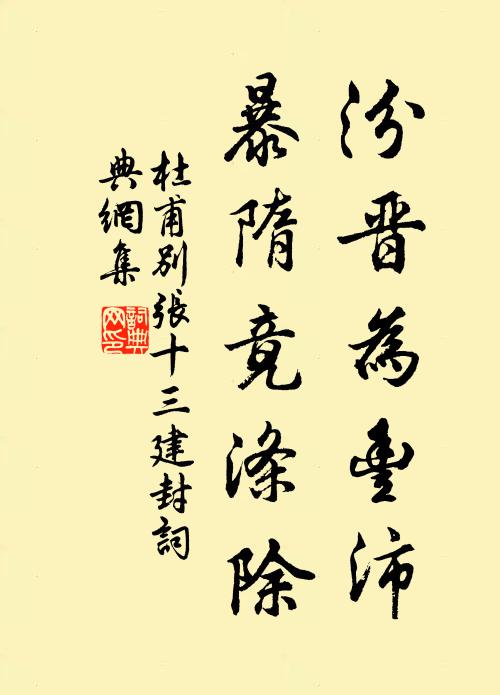 汾晋為豐沛
暴隋竟滌除
杜甫別張十三建封詞
典網集
詞典
网印